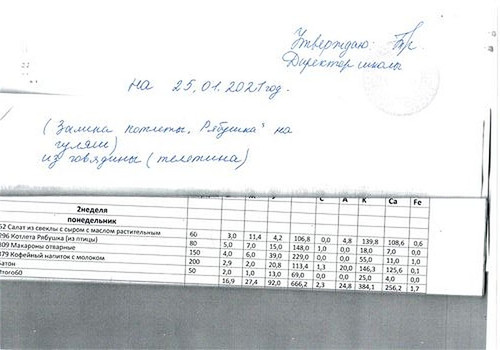 Утверждаю:
Директор школы
на 25.01.2021 год.
(Замена котлеты "Рябушка" на
гуляш)
из говядины (телетина)
2неделя
понедельник
52 Салат из свеклы с сыром с маслом растительным 60 3,0 11,4 4,2 106,8 0,0 4,8 139,8 108,6 0,6
296 Котлета Рябушка (из птицы) 80 5,0 7,0 15,0 148,0 1,0 0,0 18,0 7,0 0,0
309 Макароны отварные 150 4,0 6,0 39,0 229,0 0,0 55,0 11,0 1,0
379 Кофейный напиток с молоком 200 2,9 2,0 20,8 113,4 1,3 20,0 146,3 125,6 0,1
Батон 50 2,0 1,0 13,0 69,0 0,0 0,0 25,0 4,0 0,0
Итого60 16,9 27,4 92,0 666,2 2,3 24,8 384,1 256,2 1,7